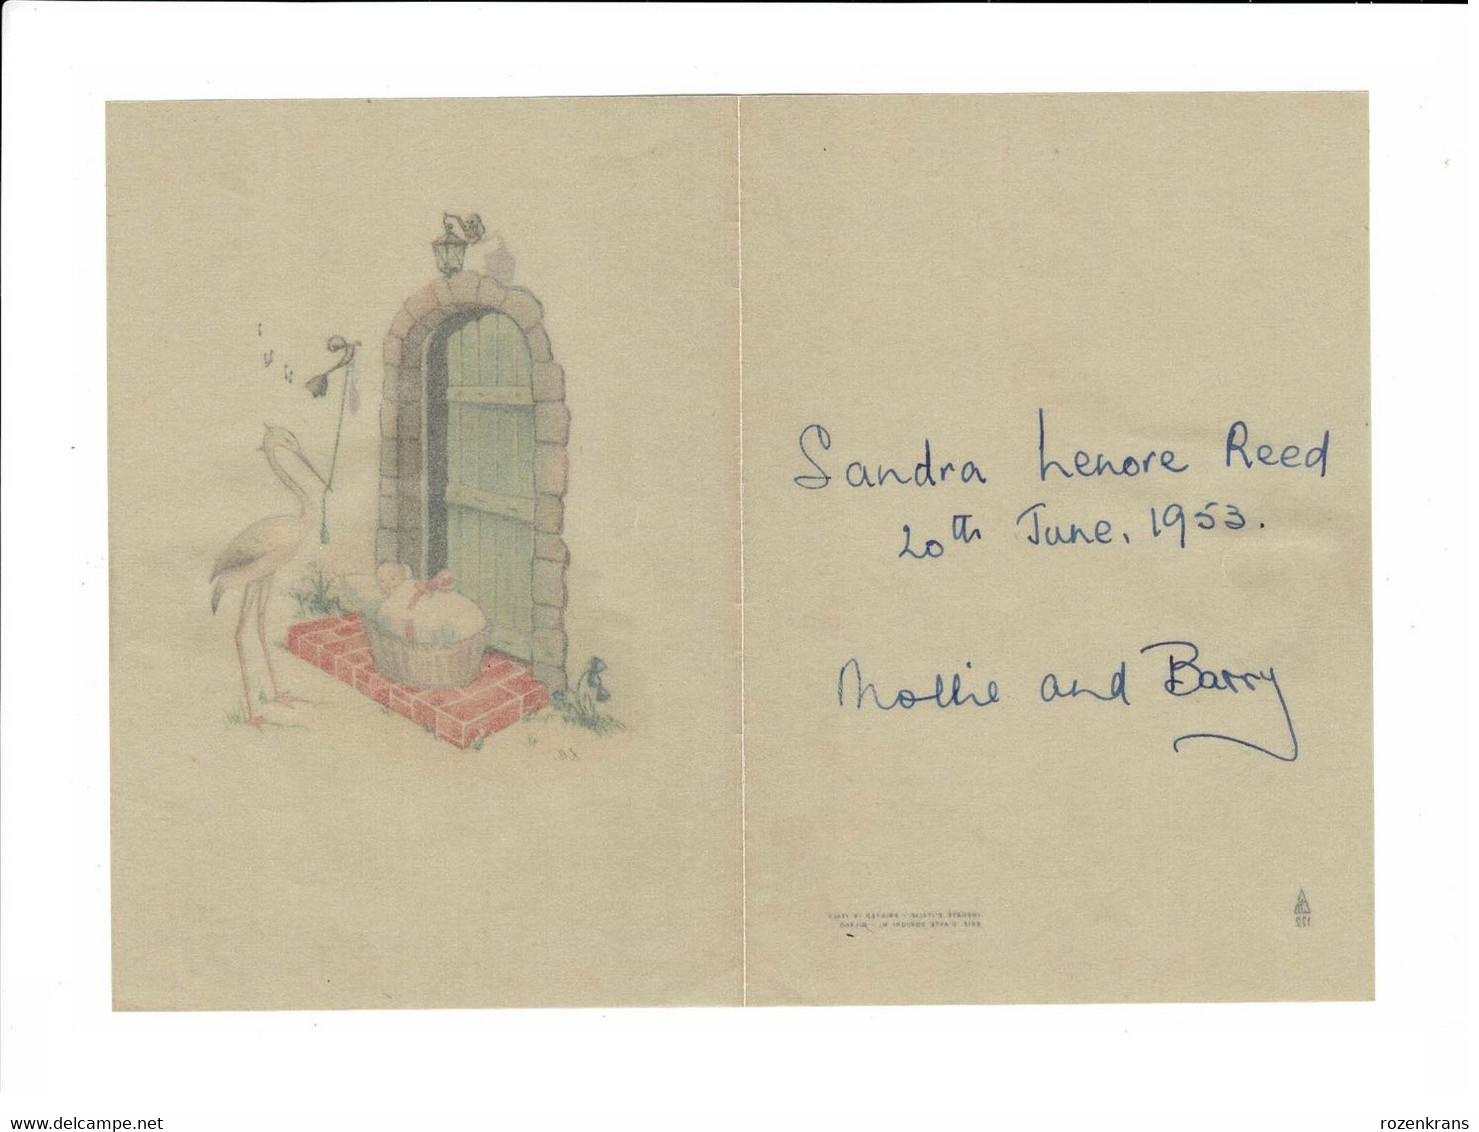 Sandra Lenore Reed
20th June, 1953.
Mollie and Barry
122
www.delcampe.net
rozenkrans